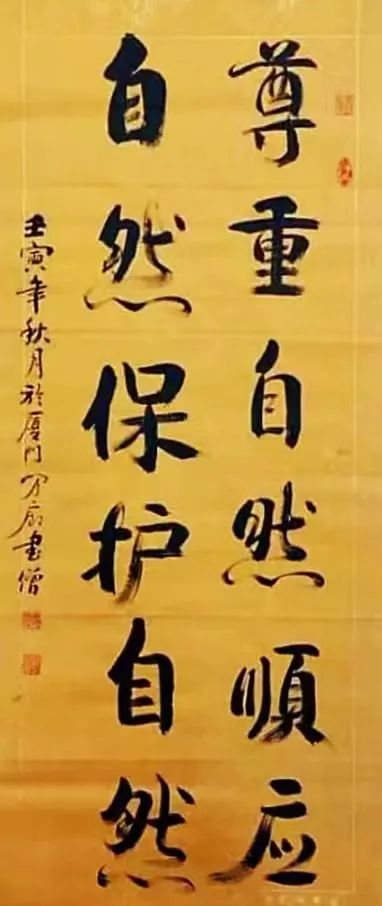 尊重自然順应
自然保护自然
壬寅年秋月於厦门
书僧